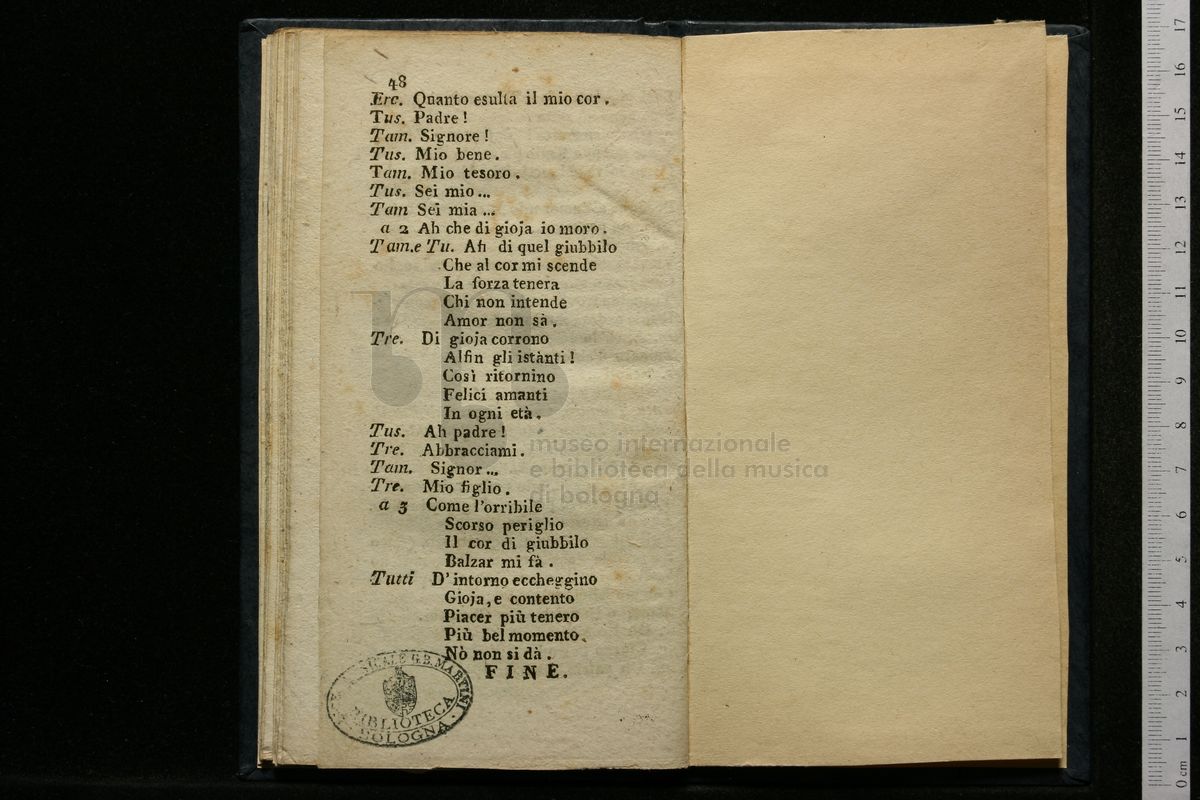 48
Erc. Quanto esulta il mio cor.
Tus. Padre!
Tam. Signore!
Tus. Mio bene.
Tam. Mio tesoro.
Tus. Sei mio...
Tam Sei mia...
a 2 Ah che di gioja io moro.
Tam.e Tu. Ah di quel giubbilo
Che al cor mi scende
La forza tenera
Chi non intende
Amor non sà.
Tre. Di gioja corrono
Alfin gli istànti!
Così ritornino
Felici amanti
In ogni età.
Tus. Ah padre!
Tre. Abbracciami.
Tam. Signor...
Tre. Mio figlio.
a 3 Come l'orribile
Scorso periglio
Il cor di giubbilo
Balzar mi fà.
Tutti D'intorno eccheggino
Gioja, e contento
Piacer più tenero
Più bel momento.
Nò non si dà.
FINE.
G.B. MARTINI
BIBLIOTECA
BOLOGNA
museo internazionale
e biblioteca della musica
di bologna
17
16
15
14
13
12
11
10
9
8
7
6
5
4
3
2
1
0 cm